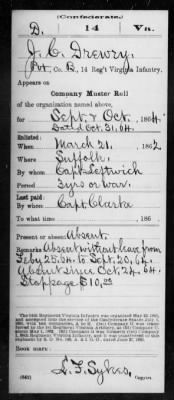 (Confederate.)
D. 14 Va.
J. C. Drewry
Pvt, Co. B, 14 Reg't Virginia Infantry.
Appears on
Company Muster Roll
of the organization named above,
for Sept & Oct., 1864.
dated Oct. 31, 64.
Enlisted:
When March 21, 1862
Where Suffolk
By whom Capt. Leftwich
Period 3 yrs or war.
Last paid:
By whom Capt. Clarke
To what time , 186 .
Present or absent Absent
Remarks: Absent without leave from
Feby 25. 64 to Sept 20, 64.
Absent since Oct. 24, 64.
Stoppage $10.
Book mark:
L. F. Sykes,
(642) Copyist.